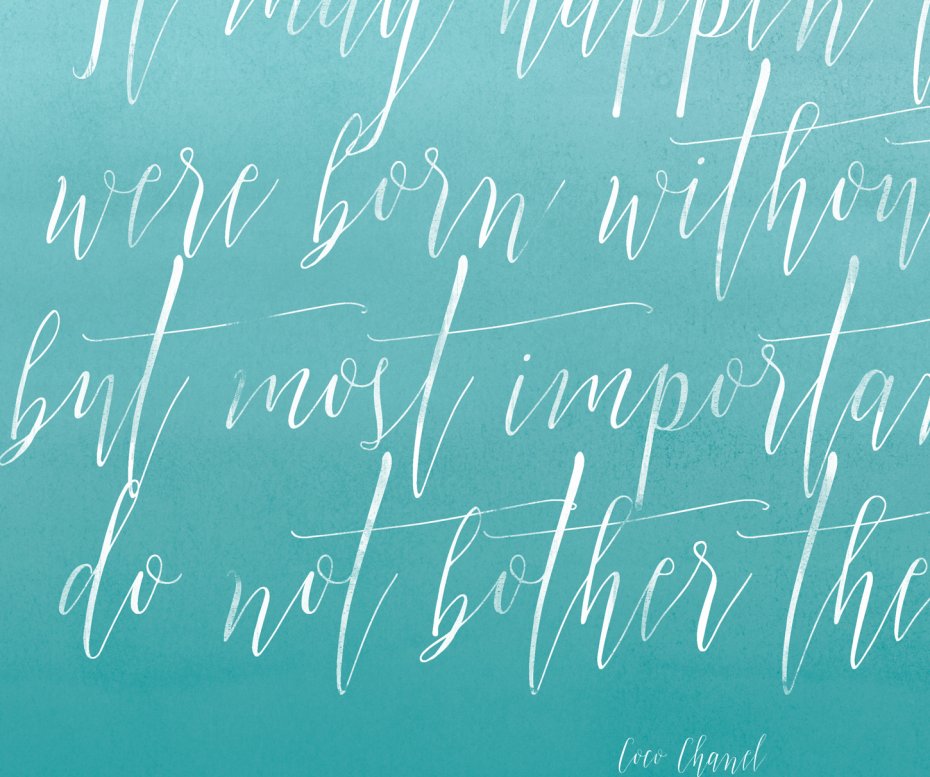 It may happen
were born withou
but most importan
do not bother the
Coco Chanel